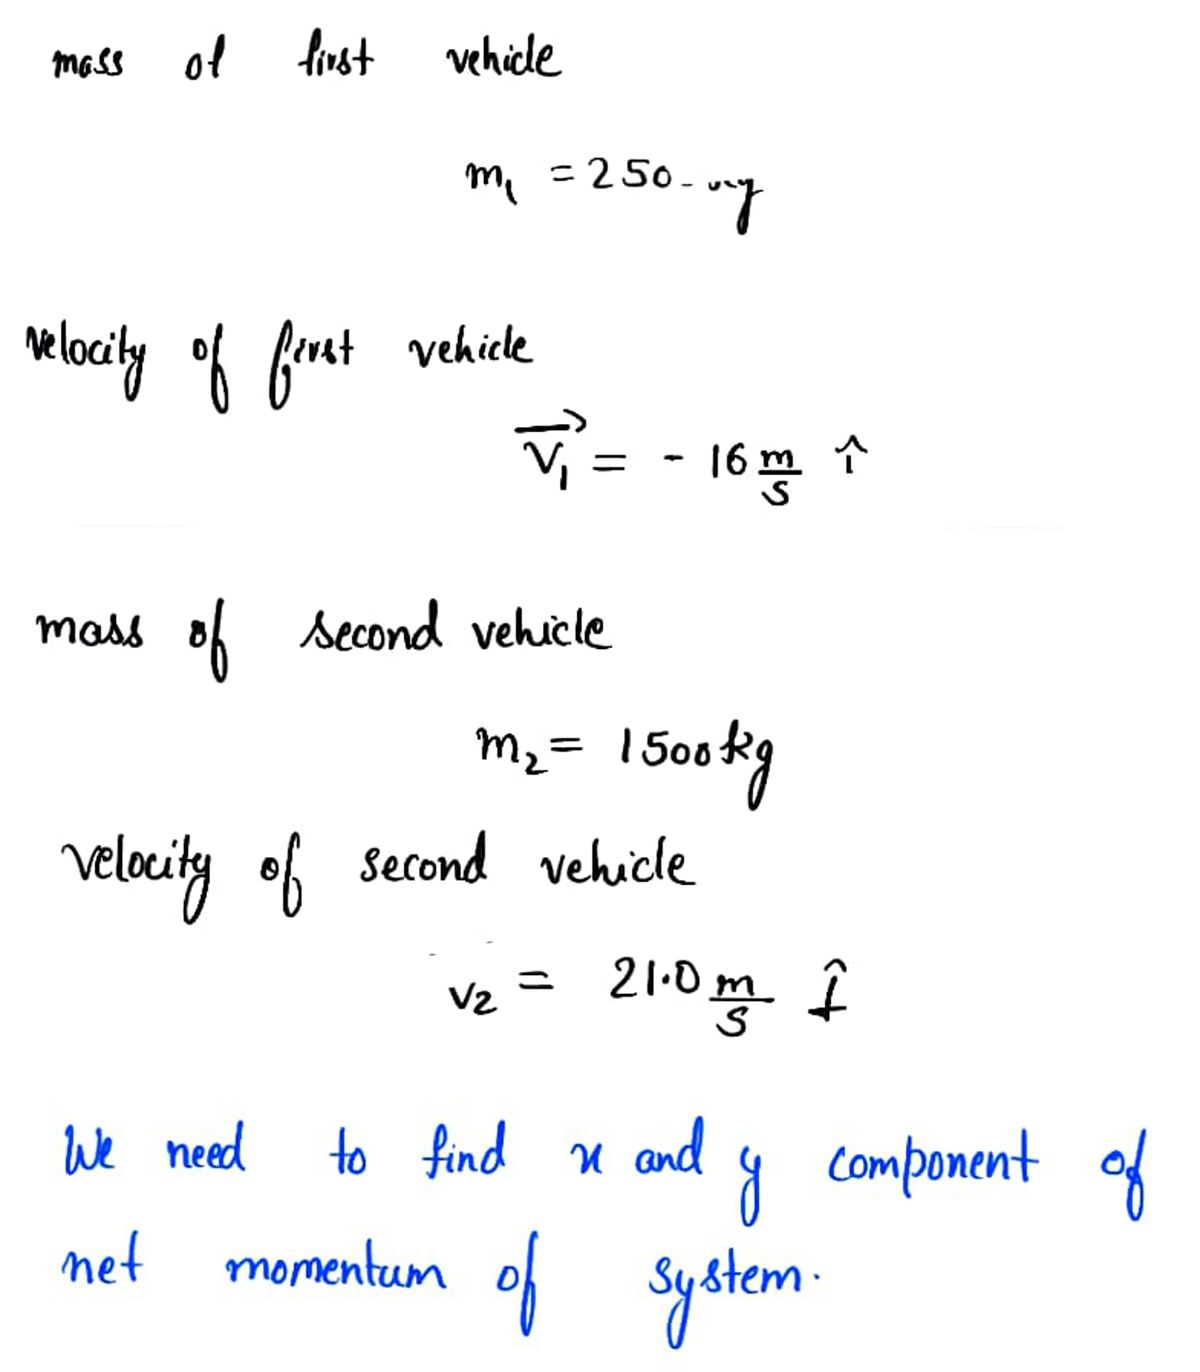 mass of first vehicle
m₁ = 250
velocity of first vehicle
V₁ = - 16 m/s î
mass of second vehicle
m₂ = 1500 kg
velocity of second vehicle
v₂ = 21.0 m/s
We need to find x and y component of
net momentum of system.